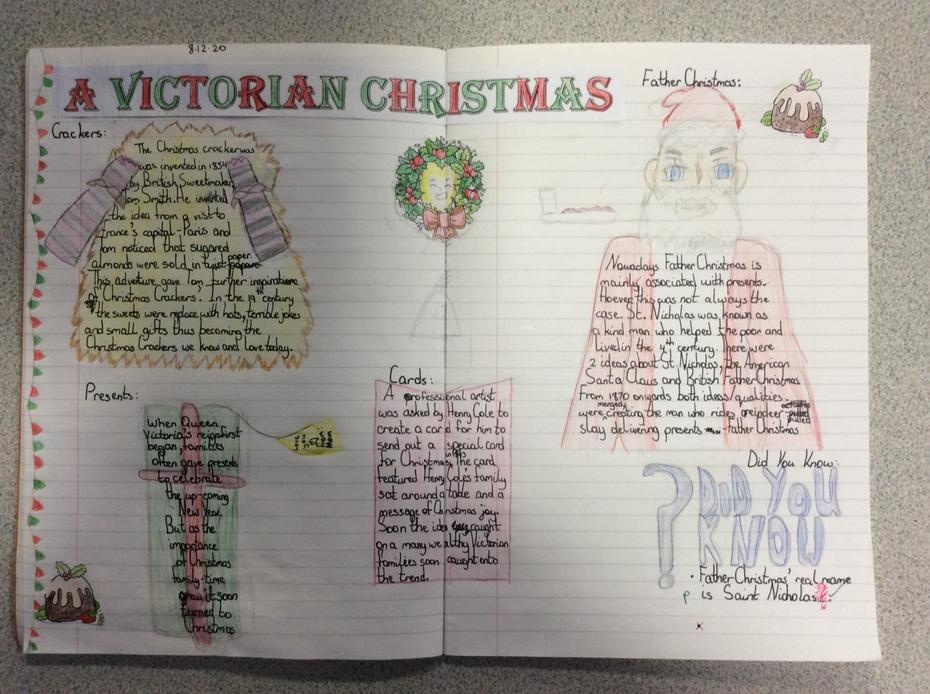 8.12.20
A VICTORIAN CHRISTMAS
Crackers:
The Christmas cracker was
was invented in 1834
by British Sweetmaker
Tom Smith. He invented
the idea from a visit to
France's capital - Paris and
Tom noticed that sugared
almonds were sold in twist paper
This adventure gave Tom further inspiration
of Christmas Crackers. In the 19th century
the sweets were replace with hats, terrible jokes
and small gifts thus becoming the
Christmas Crackers we know and love today.
Presents:
When Queen
Victoria's reign first
began, families
often gave presents
to celebrate
the up-coming
New Year.
But as the
importance
of Christmas
family-time
grew it soon
turned to
Christmas
Mom
Cards:
A professional artist
was asked by Henry Cole to
create a card for him to
send out a special card
for Christmas. The card
featured Henry Cole's family
sat around a table and a
message of Christmas joy.
Soon the idea caught
on a many wealthy Victorian
families soon caught onto
the trend.
Father Christmas:
Nowadays Father Christmas is
mainly associated with presents.
Hoever this was not always the
case. St. Nicholas was known as
a kind man who helped the poor and
lived in the 4th century. There were
2 ideas about St. Nicholas, the American
Santa Claus and British Father Christmas
From 1870 onyards both ideas/qualities
were merged, creating the man who rides a reindeer pulled
slay delivering presents - Father Christmas
Did You Know:
? DID YOU
KNOW
• Father Christmas' real name
is Saint Nicholas